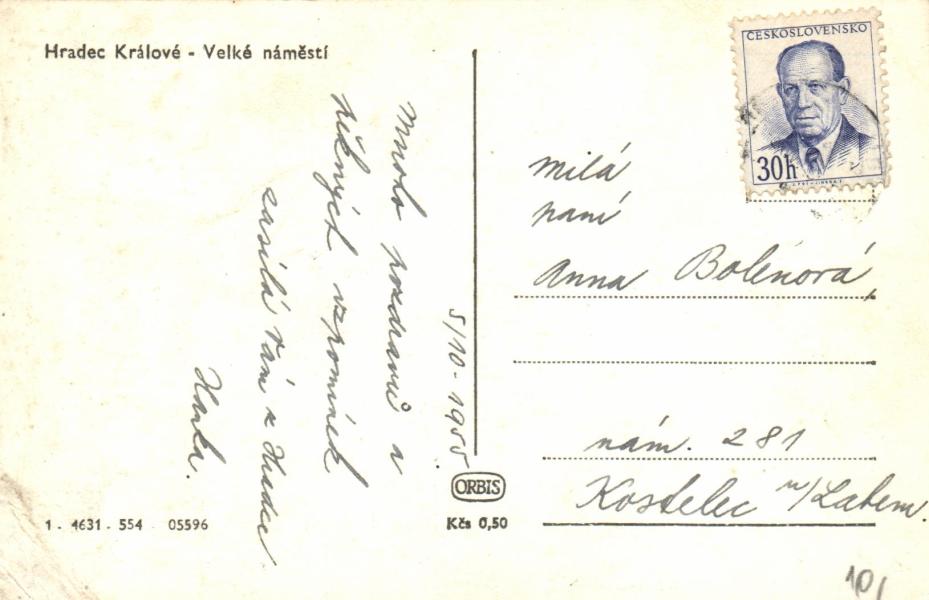 Hradec Králové - Velké náměstí
Mnoho pozdravů a
pěkných vzpomínek
zasílá Vám z Hradce
Hanka.
5/10 - 1955
ORBIS
Kčs 0,50
1 - 4631 - 554 - 05596
ČESKOSLOVENSKO
30h
Milá
paní
Anna Bolenová,
nám. 281
Kostelec n/Labem.
10,